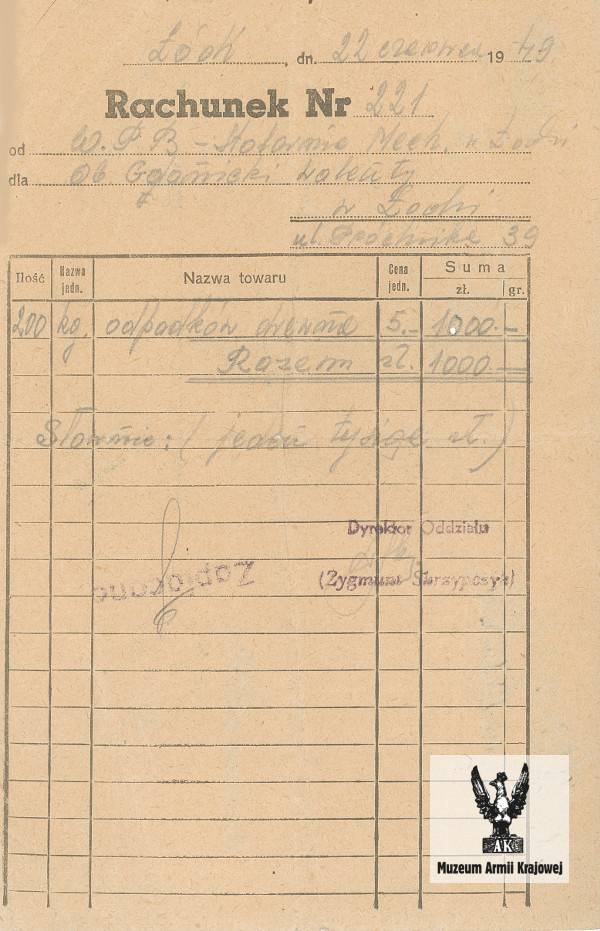 Łódź, dn. 22 czerwca 1949.
Rachunek Nr 221
od W.P.B – Mech. w Łodzi
dla Ob Walenty
w Łodzi
ul. Próchnika 39
Ilość Nazwa jedn. Nazwa towaru Cena jedn. Suma zł. gr.
200 kg. odpadków drewna 5.– 1000.–
Razem zł. 1000.–
Słownie: (jeden tysiąc zł.)
Dyrektor Oddziału
Zapłacono
(Zygmunt Skrzypczyk)
AK
Muzeum Armii Krajowej